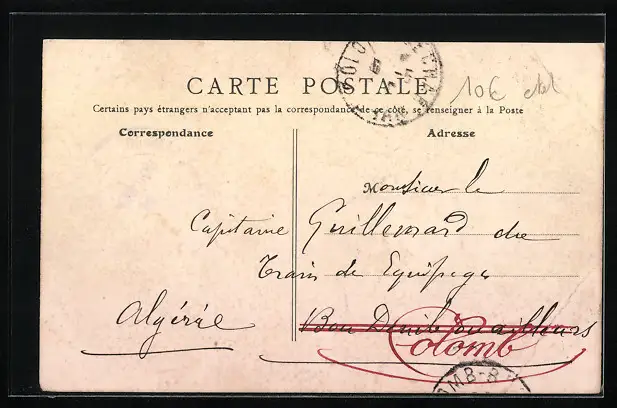 CARTE POSTALE
10€
Certains pays étrangers n'acceptant pas la correspondance de ce côté, se renseigner à la Poste
Correspondance
Adresse
Monsieur le
Capitaine Guillemard du
Train de Equipages
Algérie
Bou Denib ou ailleurs
Colomb
OMB-B